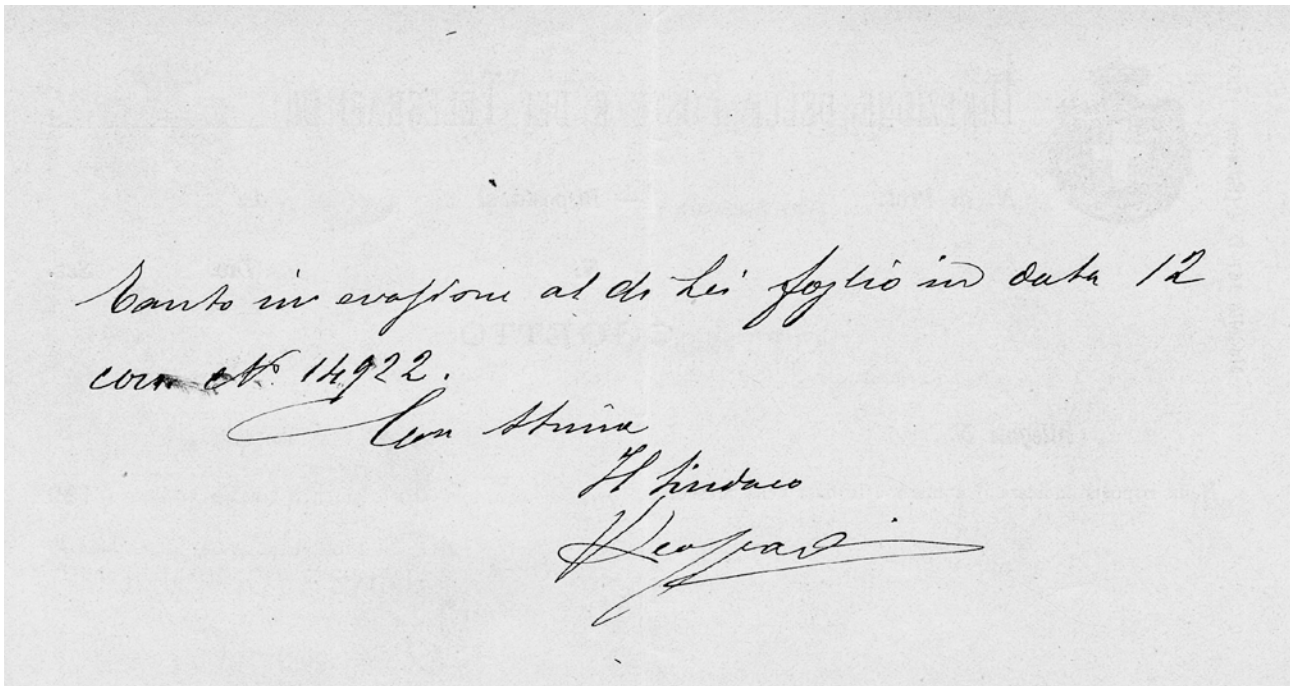 Tanto in evasione al di Lei foglio in data 12
con N. 14922.
Con stima
Il Sindaco